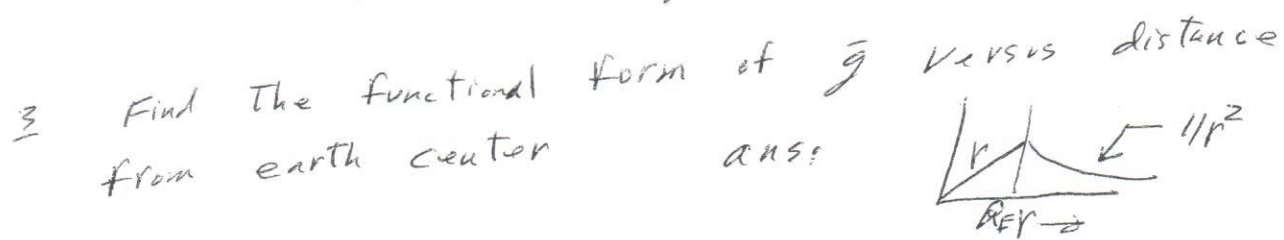 3 Find The functional form of ḡ versus distance
from earth center ans:
1/r²
r
R_E r →